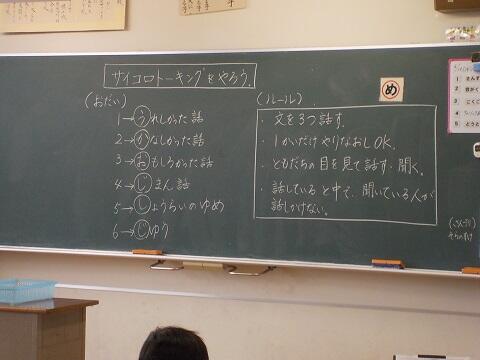 サイコロトーキングをやろう。
(おだい)
1→うれしかった話
2→かなしかった話
3→おもしろかった話
4→じまん話
5→しょうらいのゆめ
6→じゆう
め
(ルール)
・文を3つ話す。
・1かいだけやりなおしOK。
・ともだちの目を見て話す、聞く。
・話していると中で、聞いている人が
話しかけない。